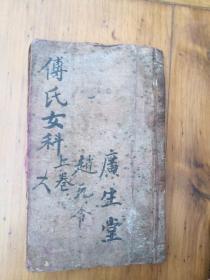 廣生堂
趙元會
傅氏女科
上卷